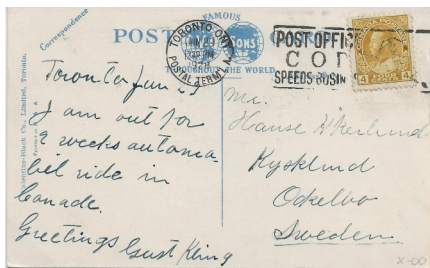 Correspondence
FAMOUS
POST CARD
THROUGHOUT THE WORLD
TORONTO, ONT.
POSTAL TERM. A
POST OFFIC
COD
SPEEDS BUSIN
4 4
Valentine-Black Co., Limited, Toronto.
Toronto Jun 23
I am out for
2 weeks automo-
bel ride in
Canade.
Greetings Gust Kling
Mr.
Hanse
Kysklund
Ockelbo
Sweden
X-00